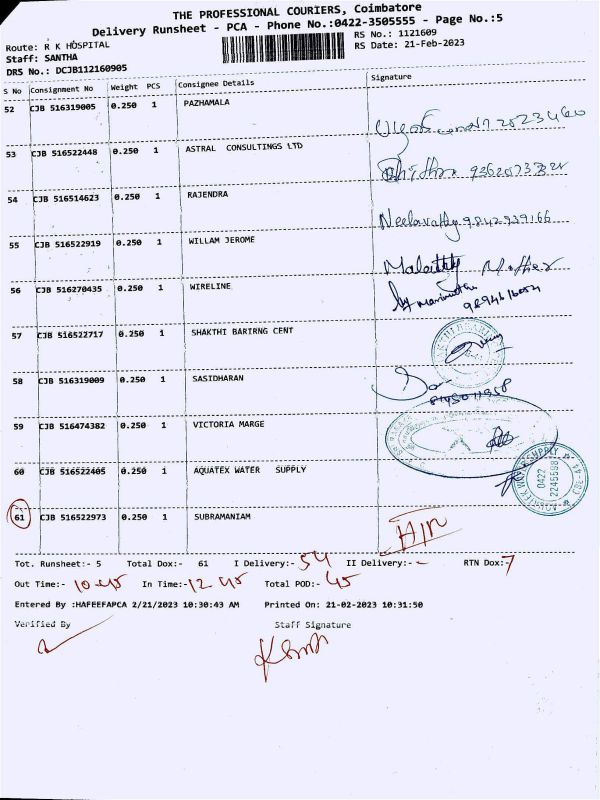 THE PROFESSIONAL COURIERS, Coimbatore
Delivery Runsheet - PCA - Phone No.:0422-3505555 - Page No.:5
Route: R K HOSPITAL
RS No.: 1121609
Staff: SANTHA
RS Date: 21-Feb-2023
DRS No.: DCJB112160905
S No Consignment No Weight PCS Consignee Details Signature
52 CJB 516319005 0.250 1 PAZHAMALA
53 CJB 516522448 0.250 1 ASTRAL CONSULTINGS LTD
54 CJB 516514623 0.250 1 RAJENDRA
Neelavathy 9842939166
55 CJB 516522919 0.250 1 WILLAM JEROME
Mother
56 CJB 516270435 0.250 1 WIRELINE
57 CJB 516522717 0.250 1 SHAKTHI BARIRNG CENT
58 CJB 516319009 0.250 1 SASIDHARAN
59 CJB 516474382 0.250 1 VICTORIA MARGE
60 CJB 516522405 0.250 1 AQUATEX WATER SUPPLY
AQUATEX WATER SUPPLY
0422
61 CJB 516522973 0.250 1 SUBRAMANIAM
Tot. Runsheet:- 5 Total Dox:- 61 I Delivery:- 54 II Delivery:- - RTN Dox:- 7
Out Time:- 10.45 In Time:- 12.45 Total POD:- 45
Entered By :HAFEEFAPCA 2/21/2023 10:30:43 AM Printed On: 21-02-2023 10:31:50
Verified By Staff Signature